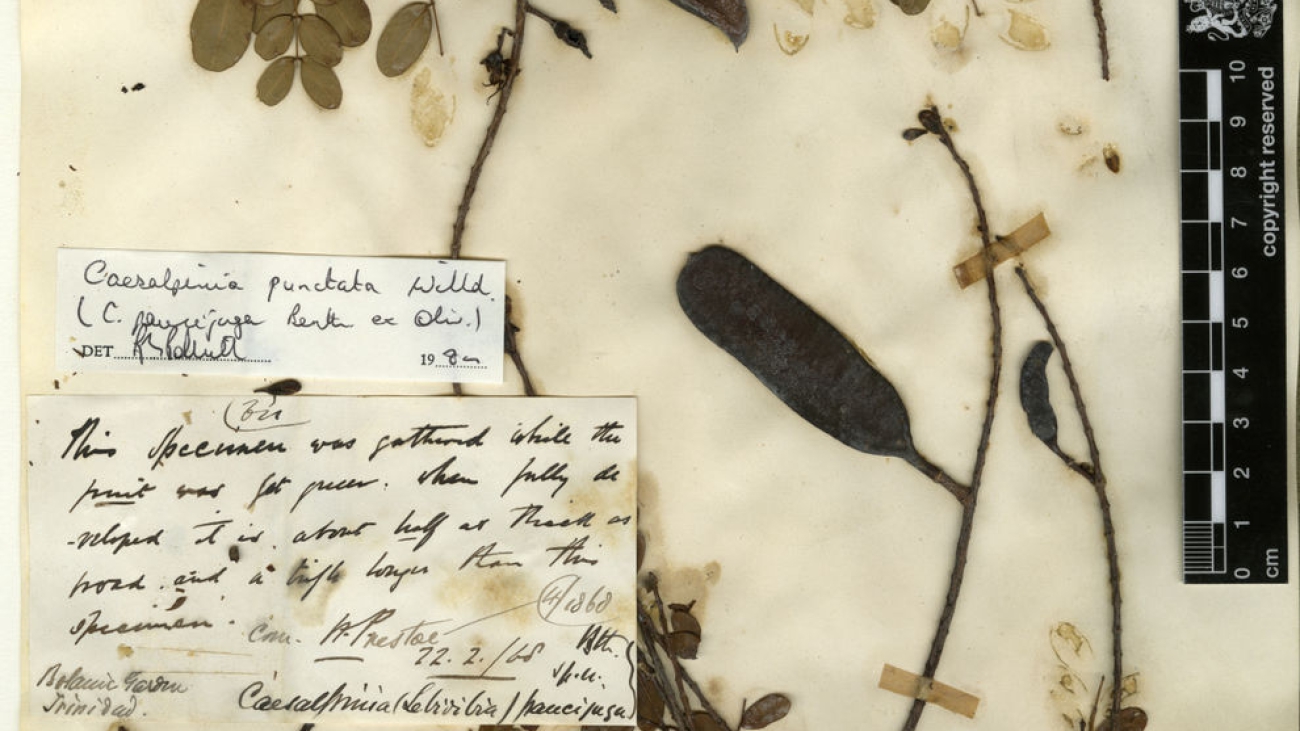 Caesalpinia punctata Willd.
(C. paucijuga Benth ex Oliv.)
DET
19 80
This specimen was gathered while the
fruit was yet green. when fully de
-veloped it is about half as thick as
broad. and a trifle longer than this
specimen.
Com. H. Prestoe
4/1868
22.2./68
Bth.
sp.n.
Botanic Garden
Trinidad.
Caesalpinia (Lebidibia) paucijuga
10
9
8
7
6
5
4
3
2
1
0
cm
copyright reserved